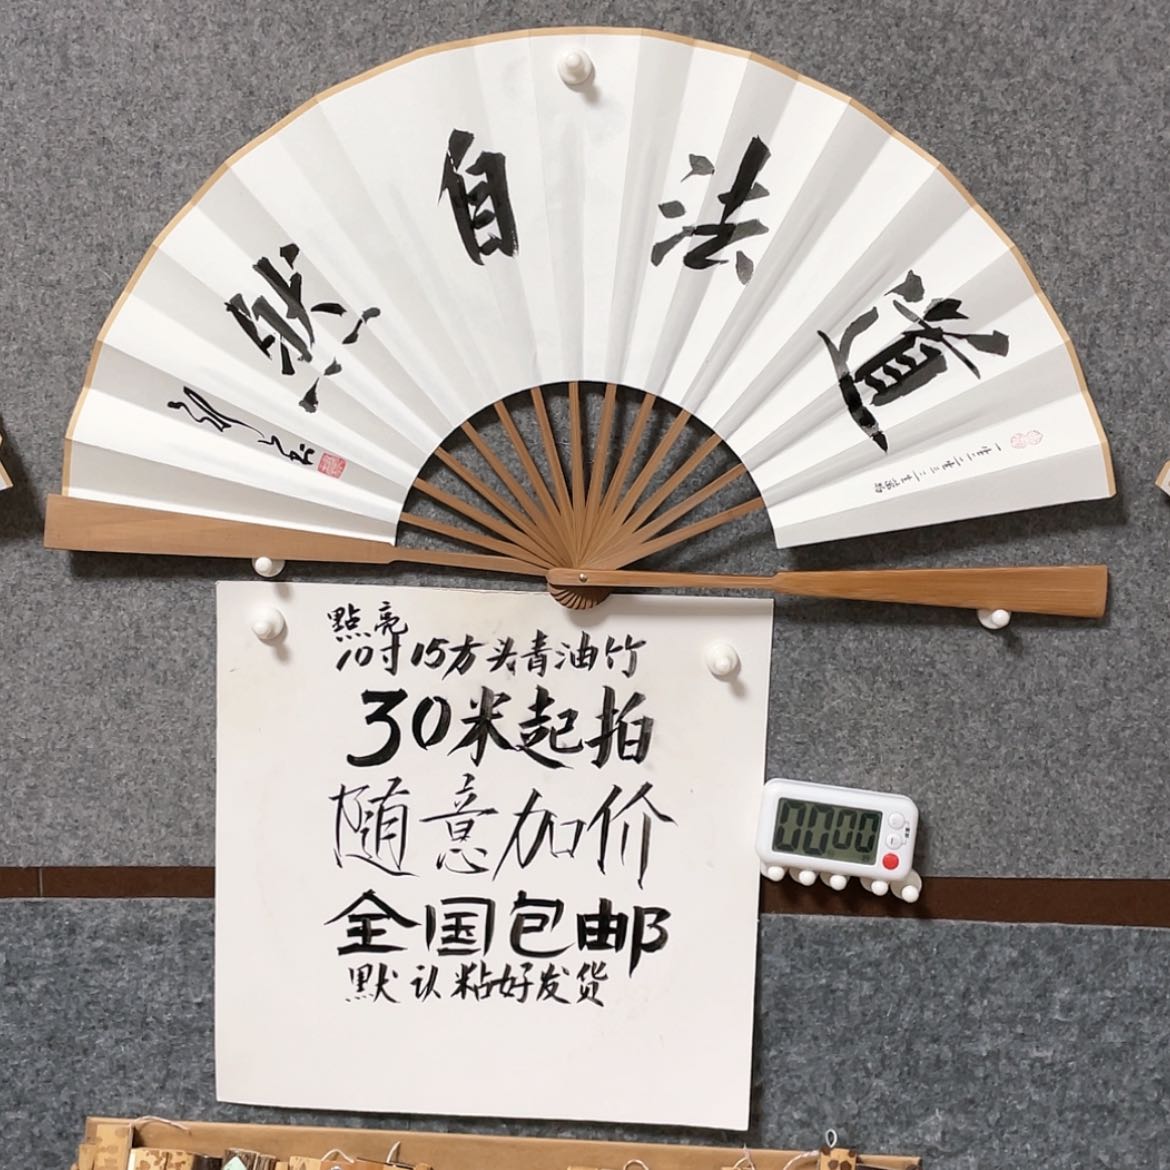 道法自然
點亮
10寸15方头青油竹
30米起拍
随意加价
全国包邮
默认粘好发货
00 00